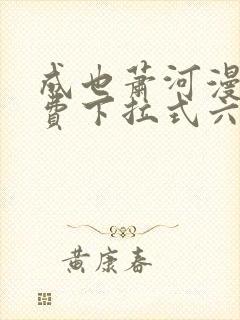 成也萧河漫
费下拉式六
黄康春